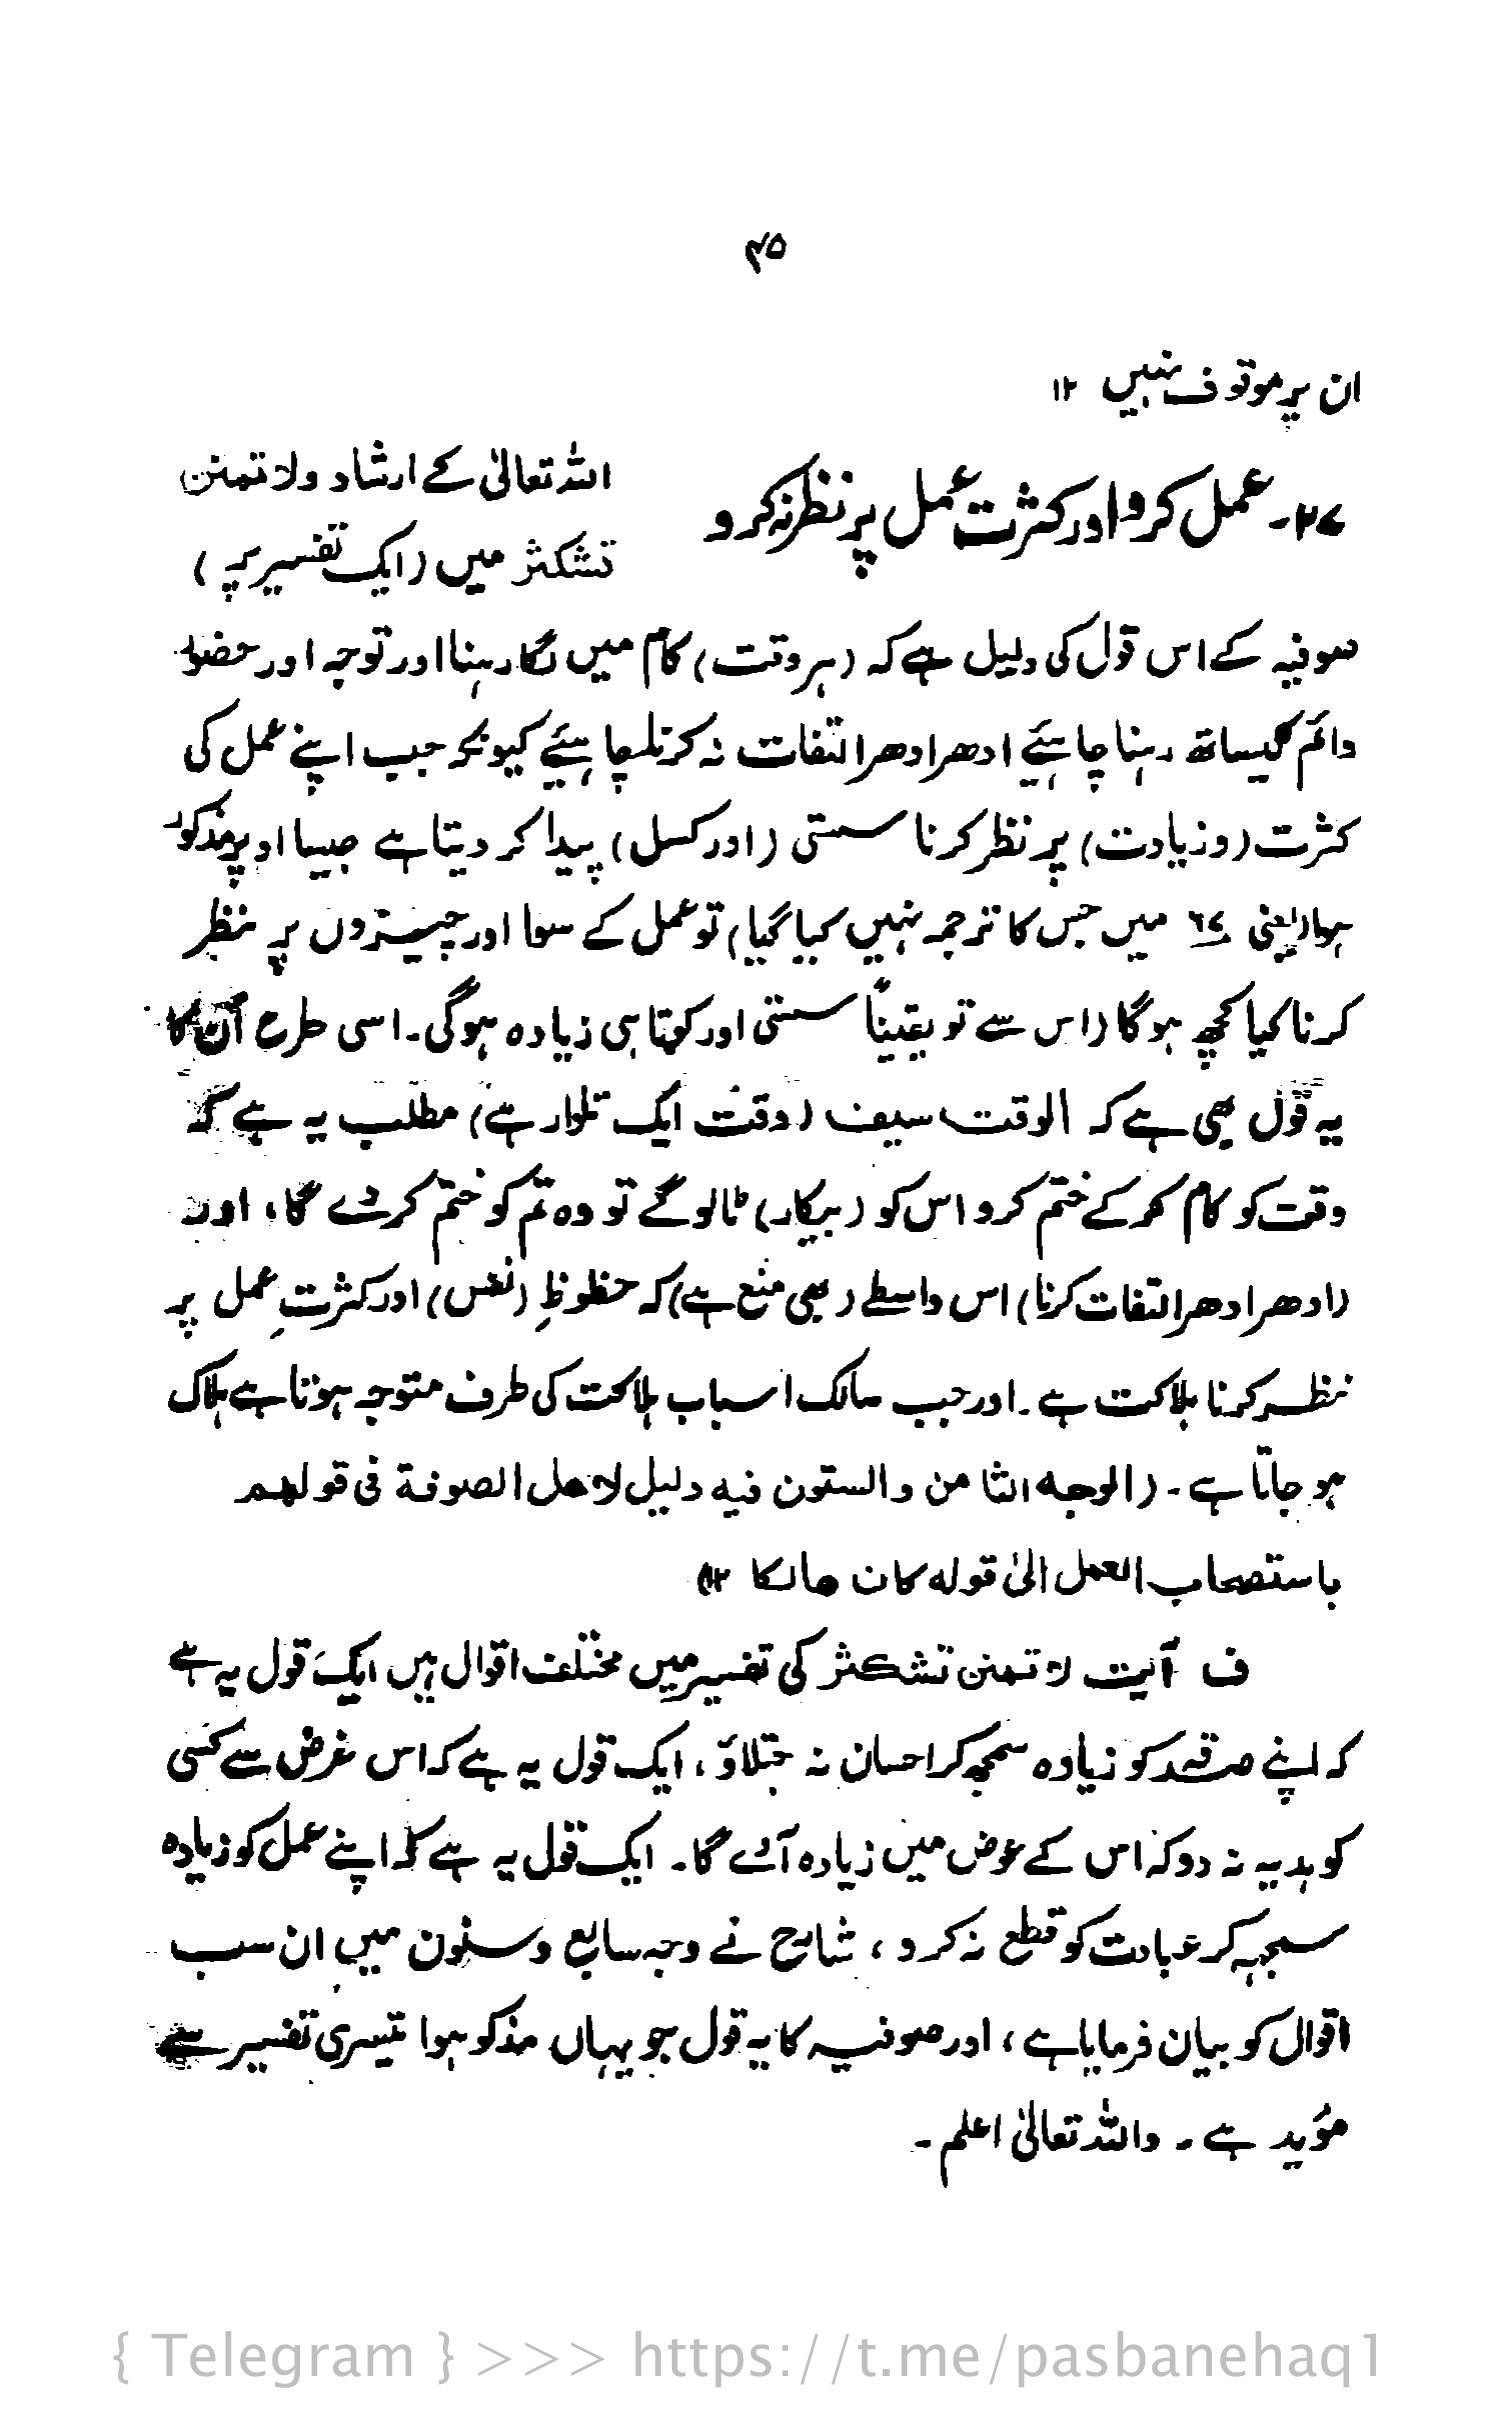 ۴۵
ان پر موقوف نہیں ۱۲
۲۷۔ عمل کرو اور کثرت عمل پر نظر نہ کرو
اللہ تعالیٰ کے ارشاد ولا تمنن
تشکثر میں (ایک تفسیر پر)
صوفیہ کے اس قول کی دلیل ہے کہ (ہر وقت) کام میں لگا رہنا اور توجہ اور حضور
دائم کیساتھ رہنا چاہئیے ادھر ادھر التفات نہ کرنا چاہئیے کیونکہ جب اپنے عمل کی
کثرت (وزیادت) پر نظر کرنا سستی (اور کسل) پیدا کر دیتا ہے جیسا اوپر مذکور
ہوا (یعنی ۶۷ میں جس کا ترجمہ نہیں کیا گیا) تو عمل کے سوا اور چیزوں پر نظر
کرنا کیا کچھ ہوگا (اس سے تو یقیناً سستی اور کوتاہی زیادہ ہوگی۔ اسی طرح ان کا
یہ قول بھی ہے کہ الوقت سیف (وقت ایک تلوار ہے) مطلب یہ ہے کہ
وقت کو کام کر کے ختم کرو اس کو (بیکار) ٹالو گے تو وہ تم کو ختم کر دے گا، اور
(ادھر ادھر التفات کرنا) اس واسطے (بھی منع ہے) کہ حظوظِ (نفس) اور کثرتِ عمل پر
نظر کرنا ہلاکت ہے۔ اور جب سالک اسباب ہلاکت کی طرف متوجہ ہوتا ہے ہلاک
ہو جاتا ہے۔ (الوجه الثامن والستون فیه دلیل لاهل الصوفة فی قولهم
باستصحاب العمل الیٰ قوله کان هالکا ۱۲)
ف آیت لا تمنن تشکثر کی تفسیر میں مختلف اقوال ہیں ایک قول یہ ہے
کہ اپنے صدقہ کو زیادہ سمجھ کر احسان نہ جتلاؤ، ایک قول یہ ہے کہ اس غرض سے کسی
کو ہدیہ نہ دو کہ اس کے عوض میں زیادہ آئے گا۔ ایک قول یہ ہے کہ اپنے عمل کو زیادہ
سمجہہ کر عبادت کو قطع نہ کرو، شارح نے وجہ سابع وستون میں ان سب
اقوال کو بیان فرمایا ہے، اور صوفیہ کا یہ قول جو یہاں مذکو ہوا تیسری تفسیر سے
مؤید ہے۔ واللہ تعالیٰ اعلم۔
{ Telegram } >>> https://t.me/pasbanehaq1